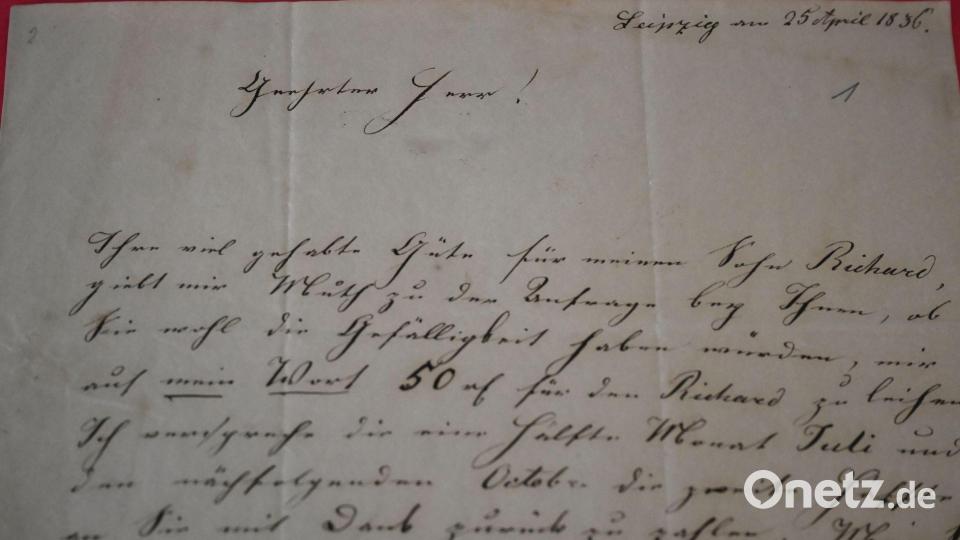 2
Leipzig am 25 April 1836.
Geehrter Herr!
1
Ihre viel gehabte Güte für meinen Sohn Richard,
giebt mir Muth zu der Anfrage bey Ihnen, ob
Sie wohl die Gefälligkeit haben würden, mir
auf mein Wort 50 für den Richard zu leihen
Ich verspreche die eine Hälfte Monat Juli und
den nächstfolgenden Octobr. die zweite Hälfte
an Sie mit Dank zurück zu zahlen.
Onetz.de